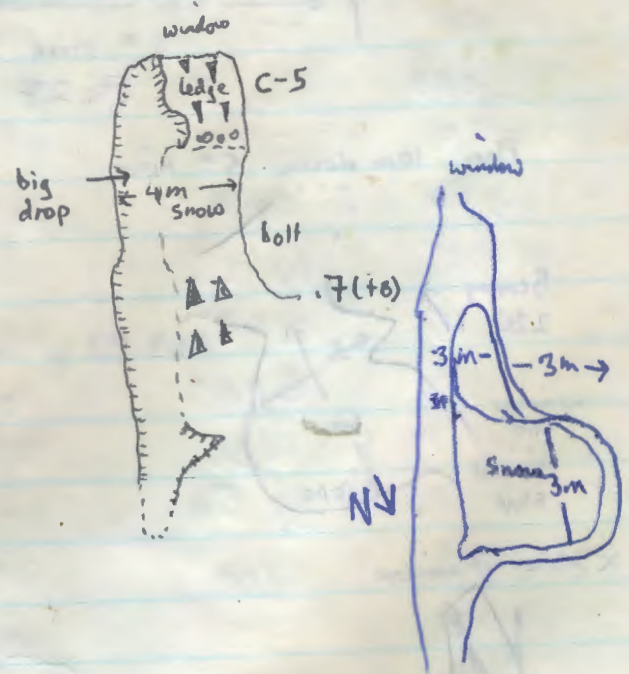 window
ledge
C-5
big
drop
4m
snow
bolt
.7(+8)
window
3m
3m →
Snow
3m
N↓